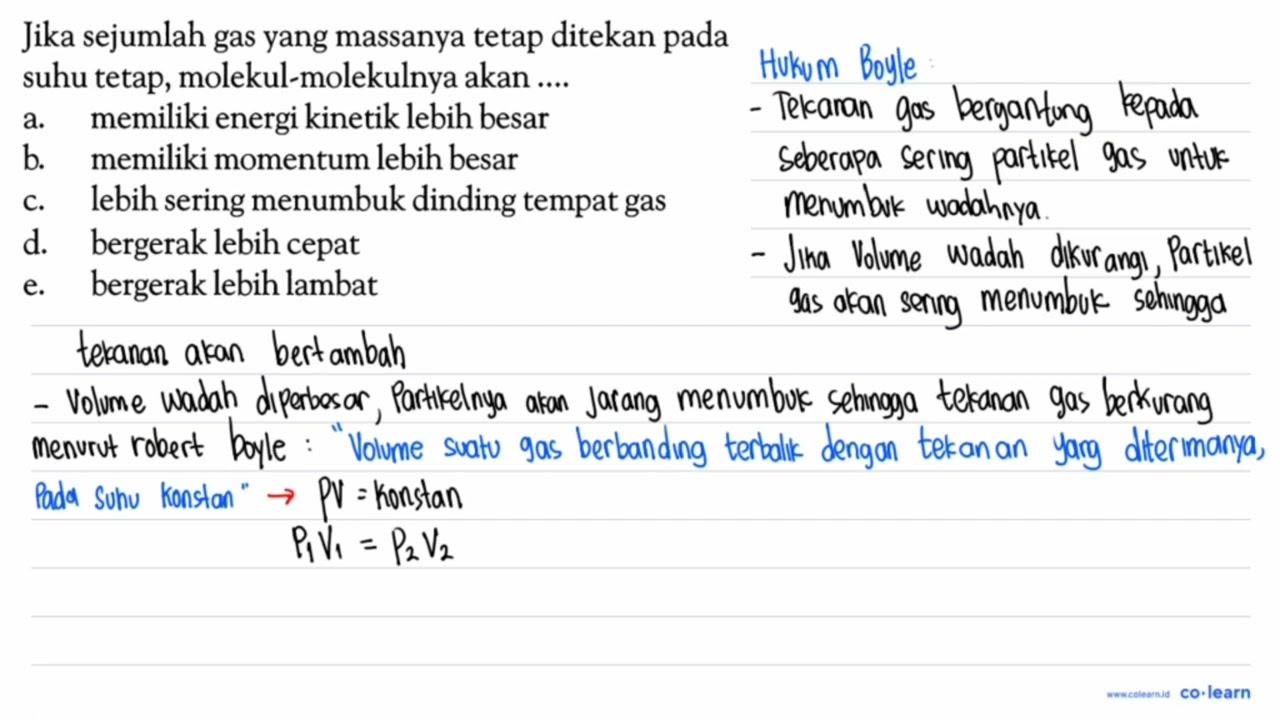 Jika sejumlah gas yang massanya tetap ditekan pada
suhu tetap, molekul-molekulnya akan ....
a. memiliki energi kinetik lebih besar
b. memiliki momentum lebih besar
c. lebih sering menumbuk dinding tempat gas
d. bergerak lebih cepat
e. bergerak lebih lambat
Hukum Boyle :
- Tekanan gas bergantung kepada
seberapa sering partikel gas untuk
menumbuk wadahnya.
- Jika Volume wadah dikurangi, Partikel
gas akan sering menumbuk sehingga
tekanan akan bertambah
- Volume wadah diperbesar, Partikelnya akan Jarang menumbuk sehingga tekanan gas berkurang
menurut robert boyle : "Volume suatu gas berbanding terbalik dengan tekanan yang diterimanya,
Pada Suhu Konstan" → PV = Konstan
P₁V₁ = P₂V₂
www.colearn.id co·learn